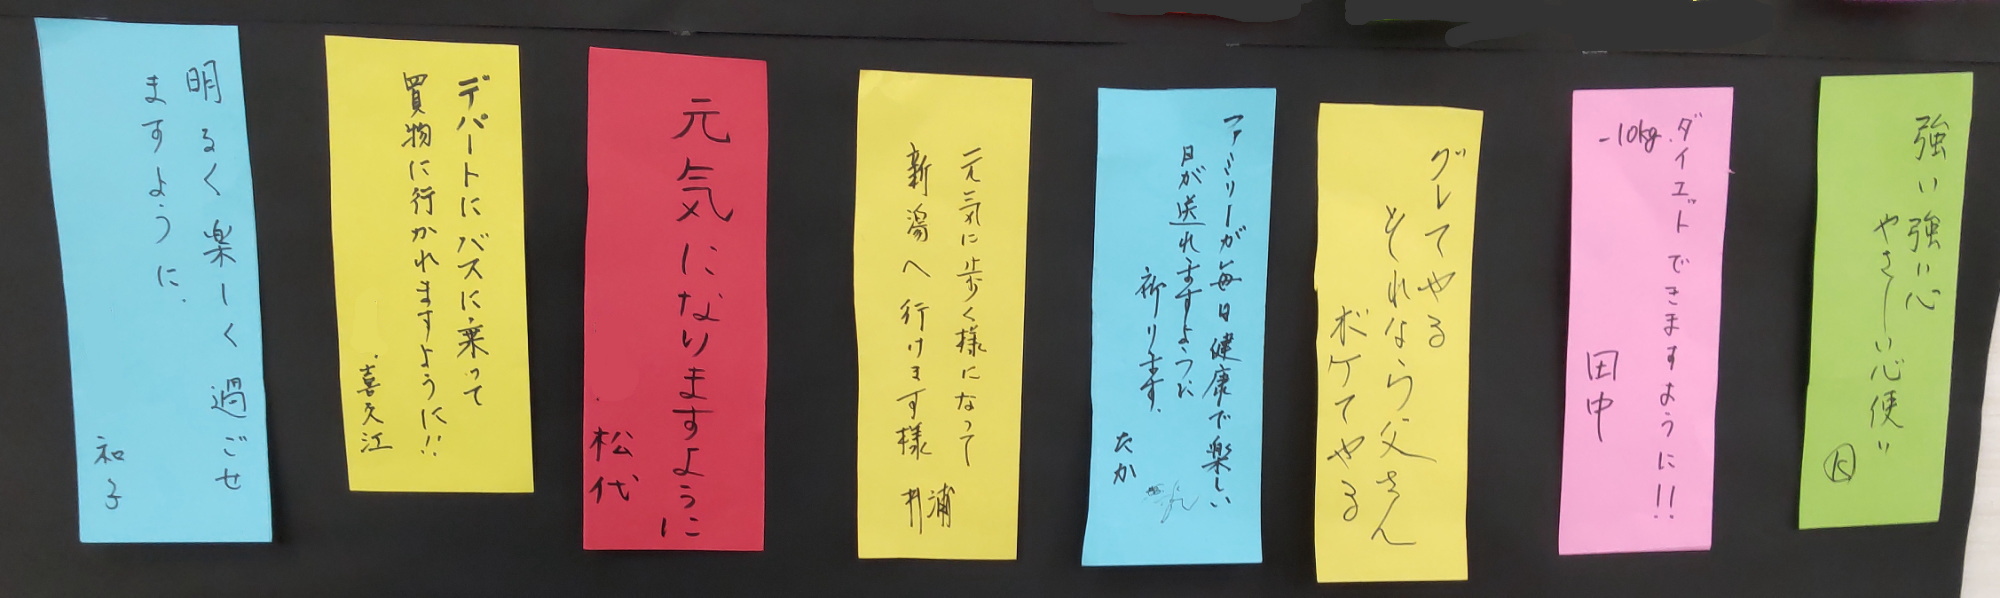 強い強い心
やさしい心使い
ダイエットできますように!!
-10kg.
田中
グレてやる
それなら父さん
ボケてやる
ファミリーが毎日健康で楽しい
日が送れますように
祈ります.
たか
元気に歩く様になって
新潟へ行けます様
浦
井
元気になりますように
松代
デパートにバスに乗って
買物に行かれますように!!
喜久江
明るく楽しく過ごせ
ますように.
和子